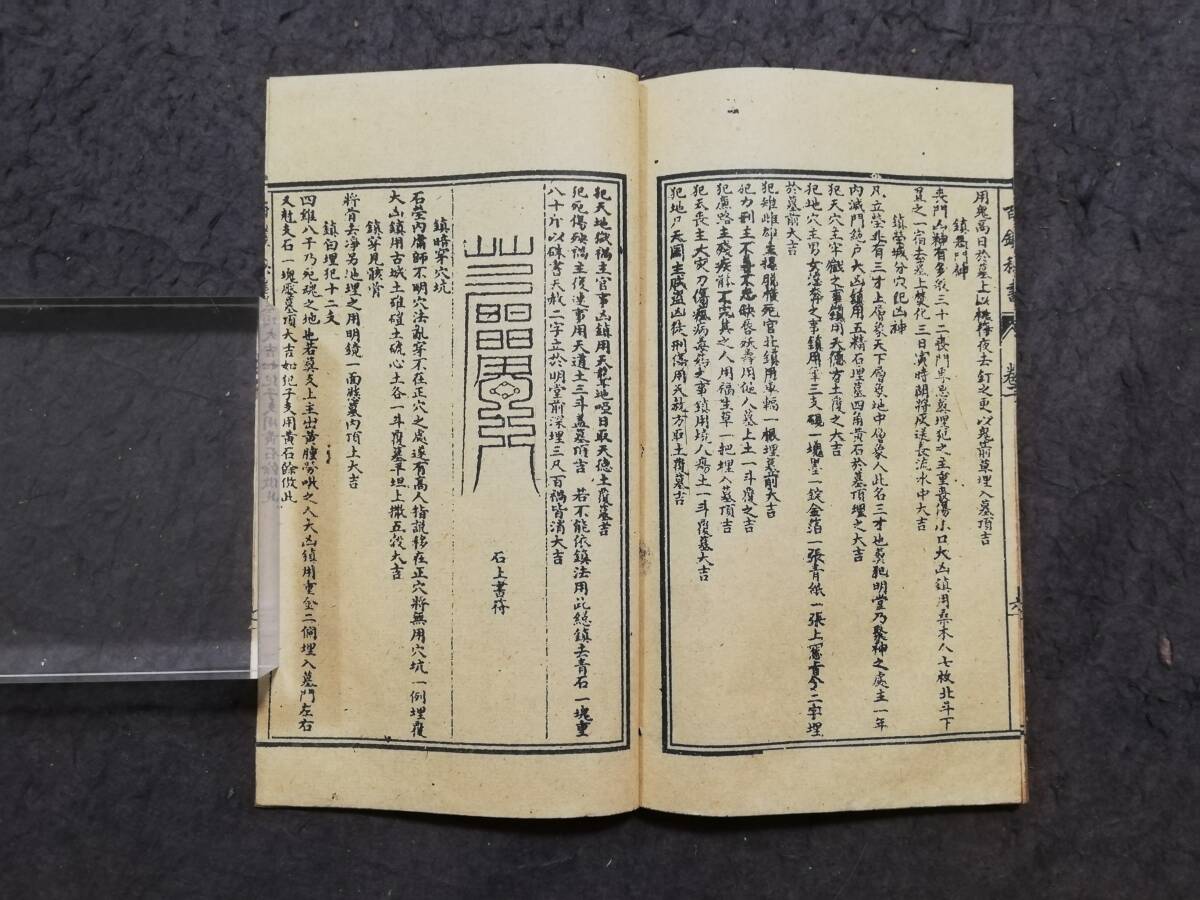 用鬼高日於墓上以桃橛夜去釘之更以鬼箭草埋入墓頂吉
鎮喪門神
喪門凶神有多般三十二喪門專忌塟埋犯之主重喪傷小口大凶鎮用桑木人七枚北斗下
奠之一宿去墓上焚化三日寅時開將灰送長流水中大吉
鎮塋城分穴犯凶神
凡立塋北有三才上層象天下層象地中層象人此名三才也奠犯明堂乃聚神之處主一年
內滅門絕戶大凶鎮用五精石埋墓四角黃石於墓頂埋之大吉
犯天穴主牢獄之事鎮用天德方土覆之大吉
犯地穴主男女淫奔之事鎮用筆三支硯一塊墨一錠金箔一張青紙一張上書二字埋
於墓前大吉
犯雉雌雄主禍脫權死官北鎮用車輻一根埋墓前大吉
犯力刑主不忠缺唇妖壽用他人墓上土一斗覆之吉
犯鹿路主殘疾不完其之人用福生草一把埋入墓頂吉
犯五喪主大灾刀傷瘟病毒药之事鎮用境人瘍土一斗覆墓大吉
犯地戶天國主賊盜凶徒刑傷用天赦方取土覆墓吉
犯天地獄禍主官事凶鎮用天聾地啞日取天德土覆墓吉
犯死傷殃禍主復連事用天道土三斗盖墓頂吉 若不能依鎮法用此總鎮去青石一塊重
八十斤以硃書天赦二字立於明堂前深埋三尺百禍皆消大吉
石上書符
鎮暗穿穴坑
石塋內庸師不明穴法亂穿不在正穴之處遂有高人指說移在正穴將無用穴坑一例埋覆
大凶鎮用古城土碓磑土硫心土各一斗覆墓平坦上撒五穀大吉
鎮穿見骸骨
將骨去淨另地埋之用明鏡一面懸墓內頂上大吉
鎮向埋犯十二支
四維八干乃死魂之地也若塟支上主出黃腫勞嗽之人大凶鎮用重金二個埋入墓門左右
又尅支石一塊壓墓頂大吉如犯子支用黃石餘倣此